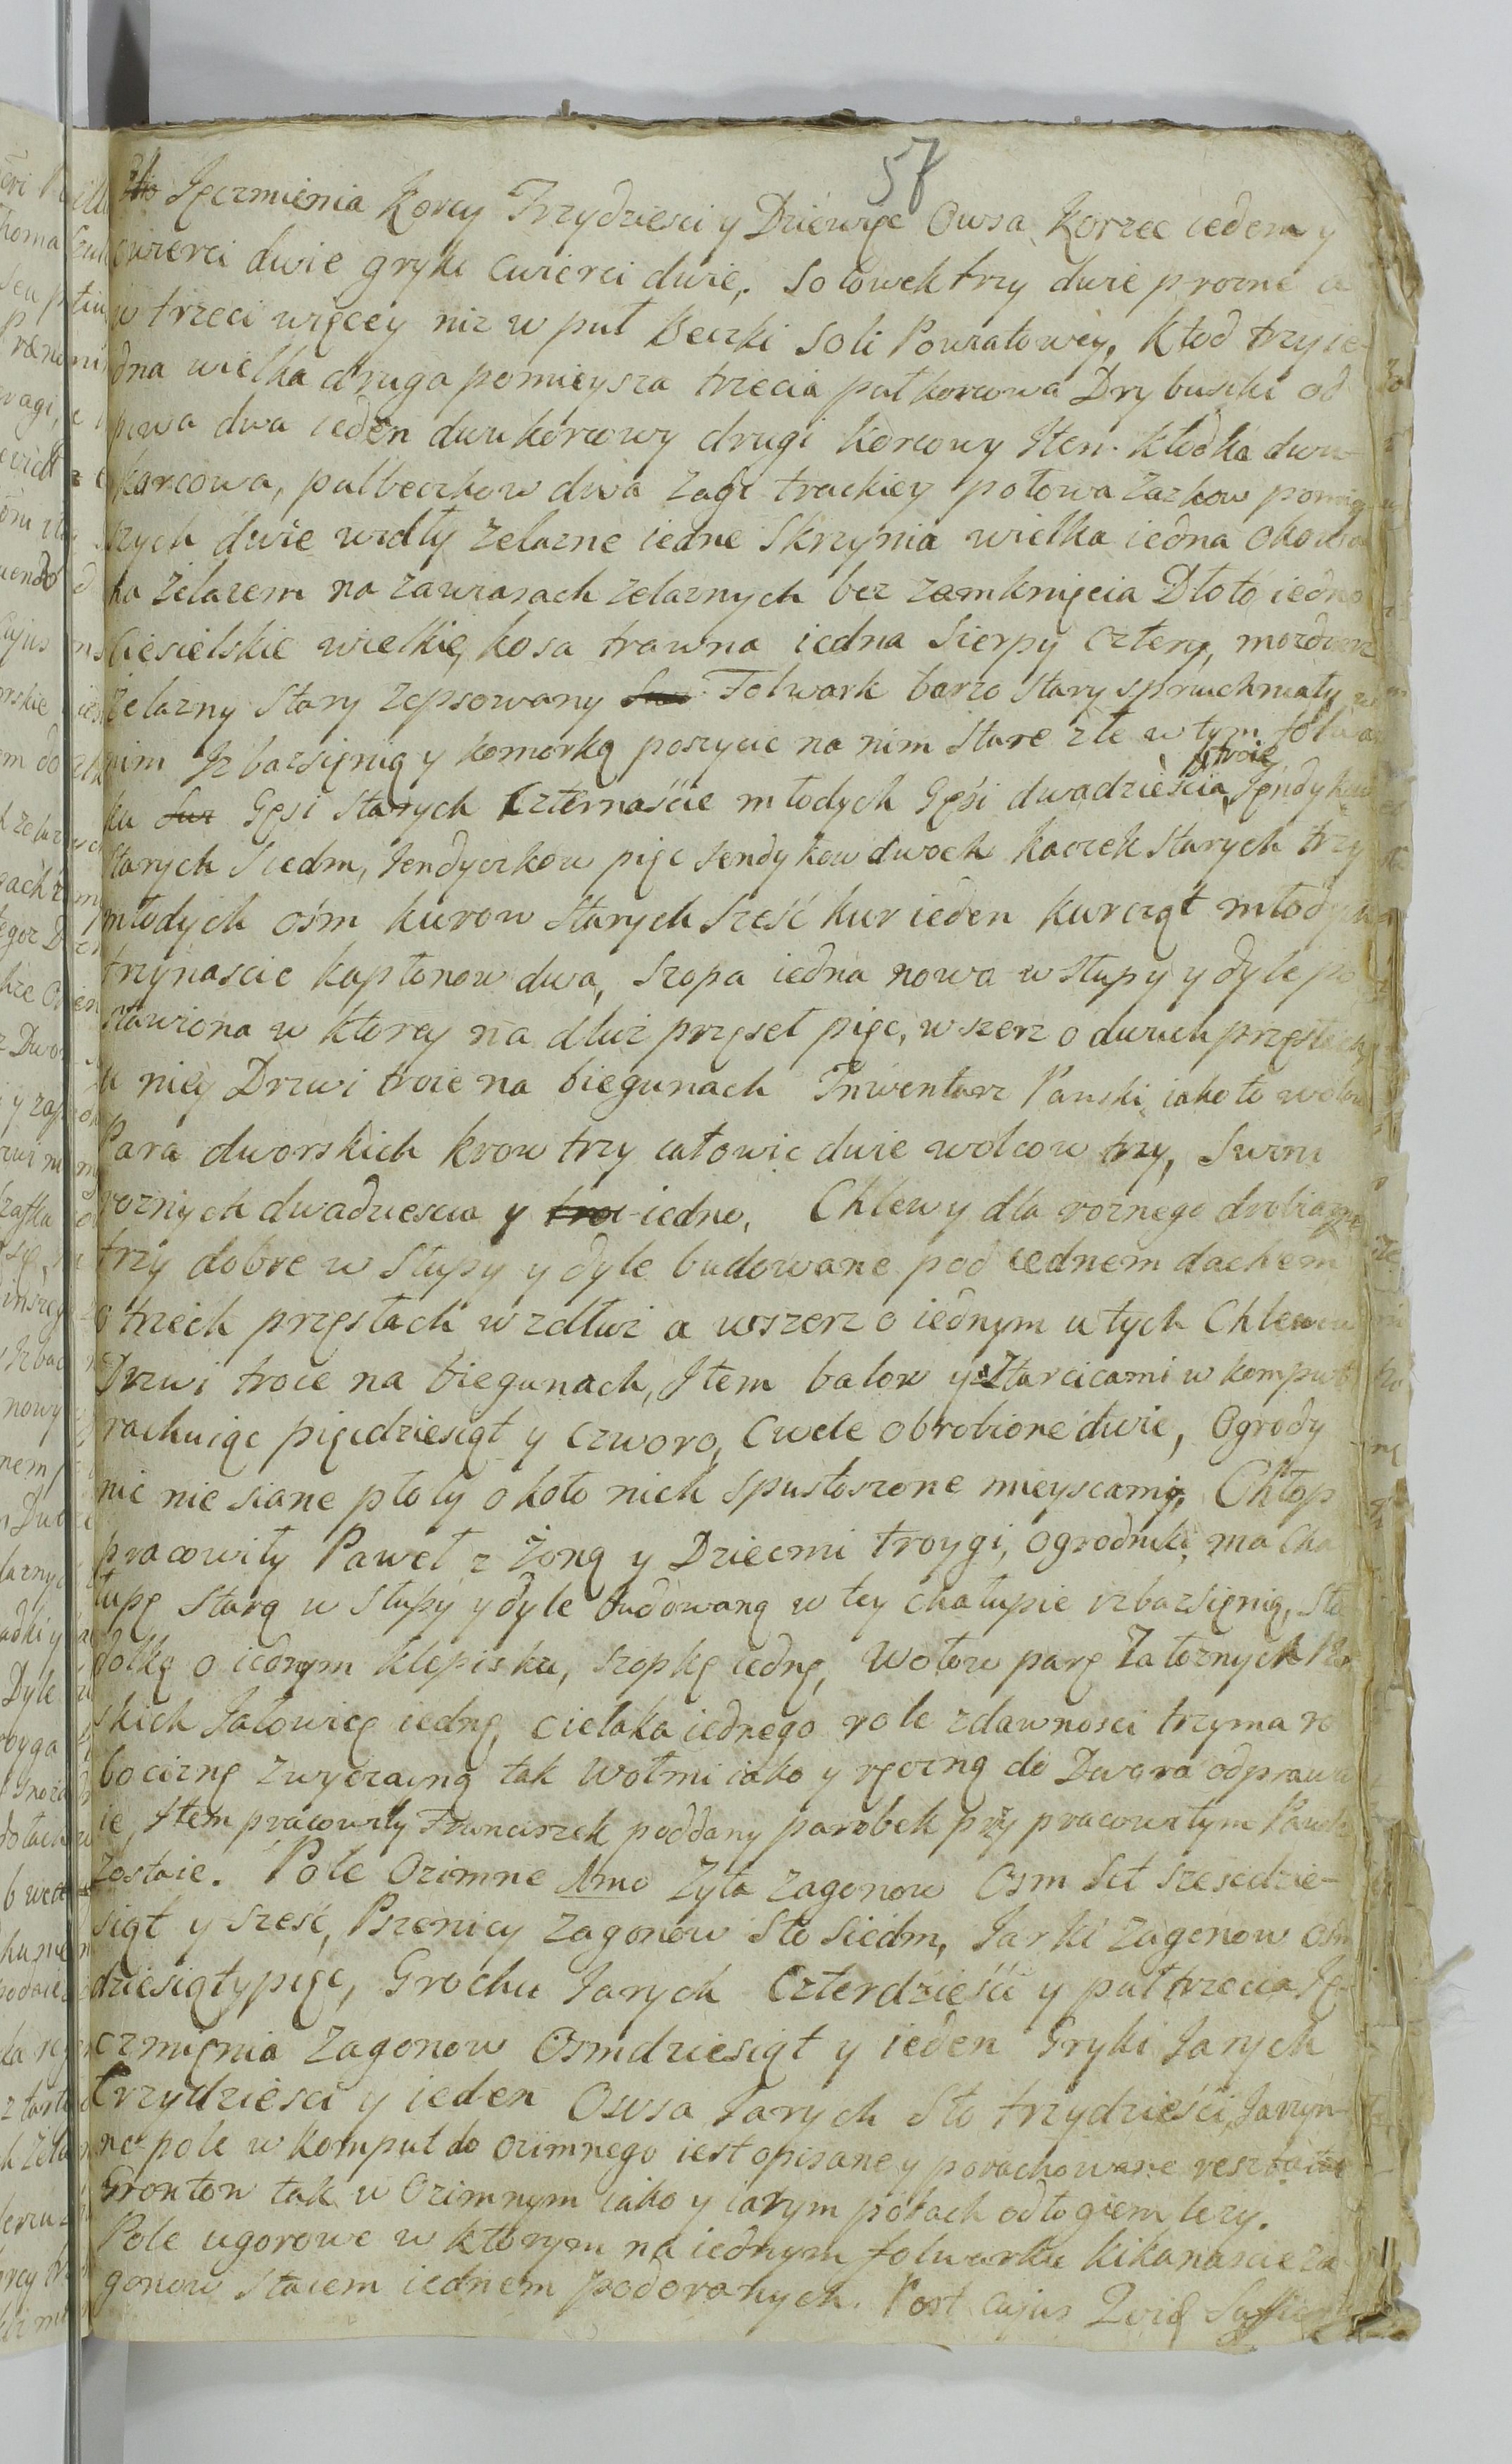 57
Jęczmienia Korcy Trzydziesci y Dziewięc Owsa Korzec ieden y
cwierci dwie gryki cwierci dwie, Solowek trzy dwie prozne a
w trzeci więcey niz w puł Beczki Soli Powiatowey, Kłod trzy ie-
dna wielka druga pomieysza trzecia pułkorcowa Drybuski od
piwa dwa ieden dwukorcowy drugi korcowy Item kłodka dwu-
korcowa, pułbeczkow dwa Zagi trackiey połowa Zazkow pomię
szych dwie widły zelazne iedne Skrzynia wielka iedna okowa
na żelazem na zawiasach zelaznych bez zamknięcia Dłoto iedno
Ciesielskie wielkie, kosa trawna iedna Sierpy cztery, mozdzerz
żelazny Stary zepsowany Folwark barzo Stary spruchniały w
nim Izba z sięnią y komorką poszycie na nim Stare złe w tym folwar
ku Gęsi Starych Czternaście młodych Gęsi dwadzieścia troie Jendykow
Starych Siedm, Jendyczkow pięc Jendykow dwoch kaczek Starych trzy
młodych ośm kurow Starych Sześć kur ieden kurcząt młodych
trzynascie kapłonow dwa, Szopa iedna nowa w słupy y dyle po
stawiona w ktorey na dłuż przęseł pięc, wszerz o dwuch przęsłach
u niey Drzwi troie na biegunach Inwentarz Pański iako to wołow
Para dworskich krow trzy iałowic dwie wolcow trzy, Swini
roznych dwadziescia y iedno, Chlewy dla roznego drobiazgu
trzy dobre w Słupy y dyle budowane pod iednem dachem
o trzech przęsłach wzdłuż a wszerz o iednym u tych Chlewow
Drzwi troie na biegunach, Item balow y z Tarcicami w komput
rachuiąc pięcdziesiąt y czworo, Cwele obrobione dwie, Ogrody
nic nie siane płoty około nich spustoszone mieyscami, Chłop
pracowity Paweł z żoną y Dziecmi troygi, ogrodniki, ma Cha
łupę Starą w słupy y dyle budowaną w tey chałupie izba z sięnią, Sto
dołkę o iednym klepisku, szopkę iednę, Wołow parę Załoznych Pań
skich Jałowicę iednę, cielaka iednego role zdawnosci trzyma ro
bociznę zwyczayną tak Wołmi iako y ręczną do Dwora odprawu
ie, Item pracowity Franciszek poddany parobek przy pracowitym Pawle
zostaie. Pole Ozimne Imo Zyta zagonow Osm Set szescdzie-
siąt y sześć, Pszenicy zagonow Sto Siedm, Jarki zagonow ośm
dziesiąt y pięc, Grochu Jarych Czterdzieści y puł trzecia Ję-
czmięnia Zagonow Osmdziesiąt y ieden Gryki Jarych
trzydziesci y ieden Owsa Jarych Sto trzydzieści, Jarzyn-
ne pole w komput do ozimnego iest opisane y porachowane reszta
Grontow tak w Ozimnym iako y iarym polach odłogiem lezy.
Pole ugorowe w ktorym na iednym folwarku kikanascie za
gonow Staiem iednem podoranych. Post cujus